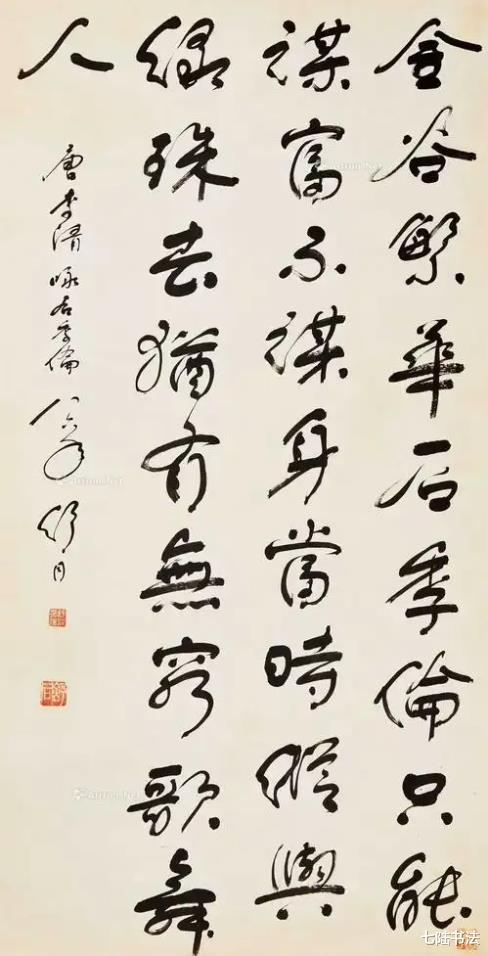 金谷繁華石季倫只能
謀富不謀身當時縱與
綠珠去猶有無窮歌舞
人
唐李清咏石季倫 八六年 舒同
七陆书法